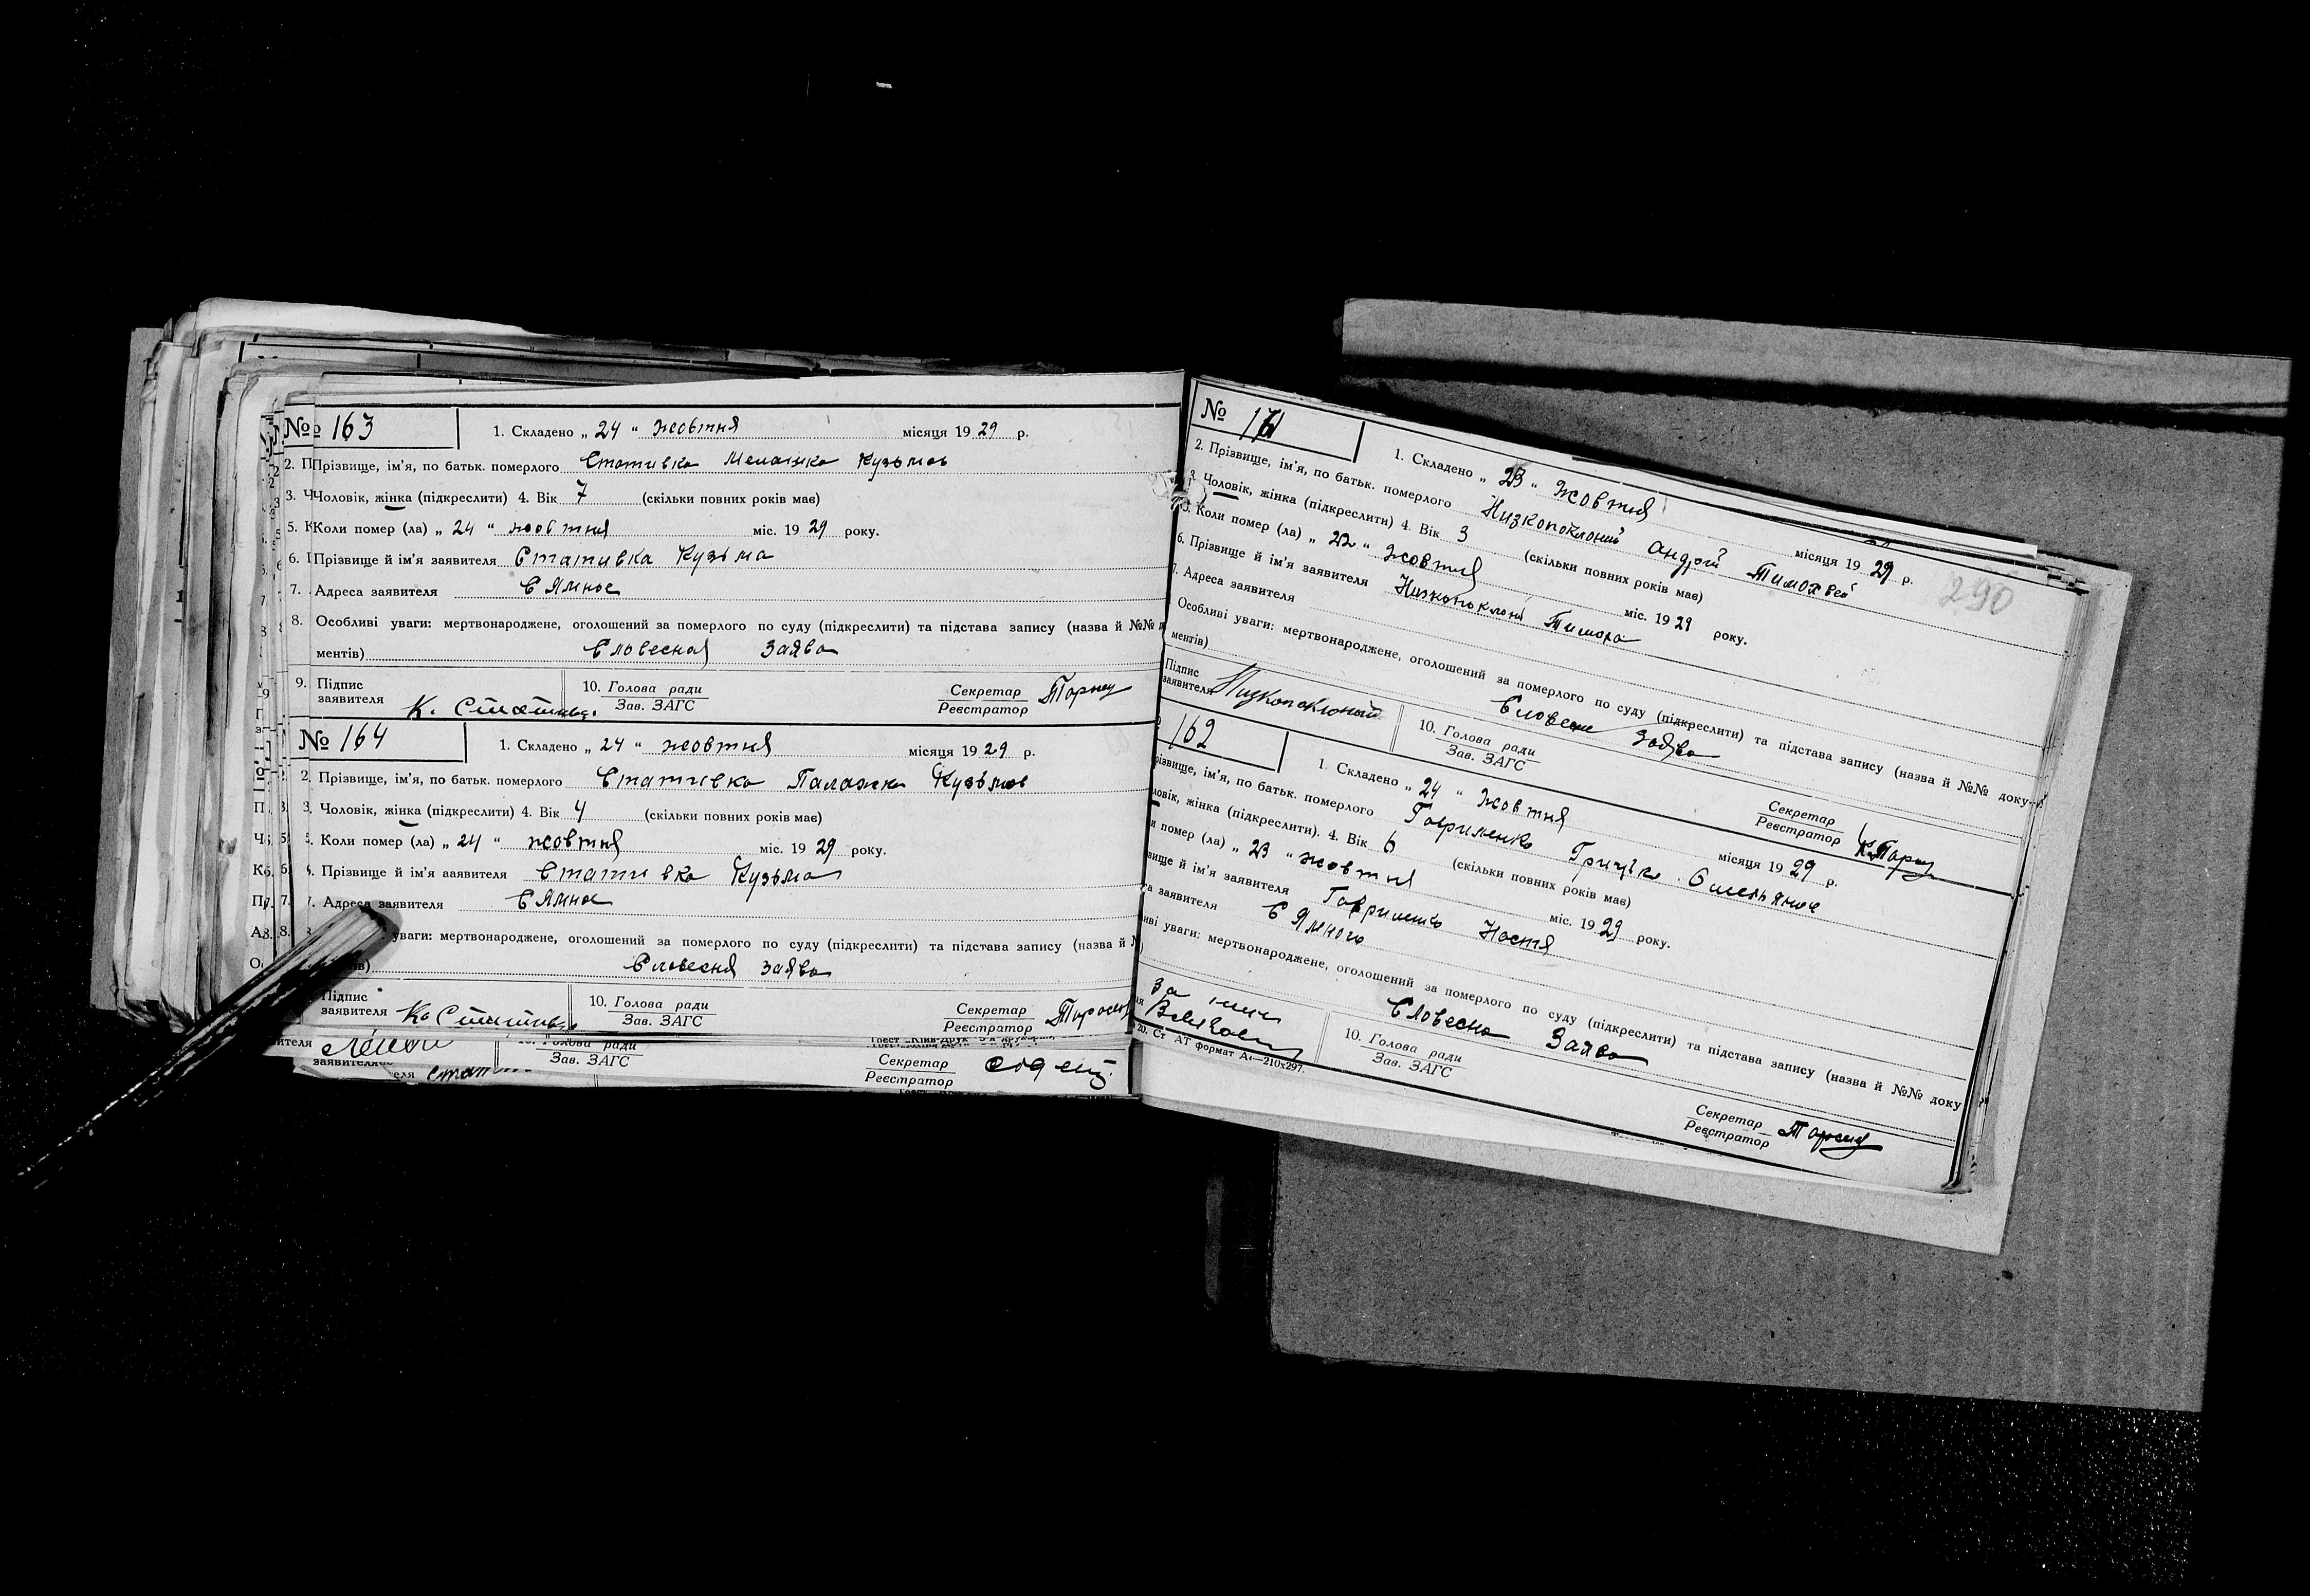 № 163
1. Складено „ 24 “ жовтня місяця 19 29 р.
2. Прізвище, ім'я, по батьк. померлого Стативка Мелашка Кузьмов
3. Чоловік, жінка (підкреслити) 4. Вік 7 (скільки повних років має)
5. Коли помер (ла) „ 24 “ жовтня міс. 19 29 року.
6. Прізвище й ім'я заявителя Стативка Кузьма
7. Адреса заявителя С Ямное
8. Особливі уваги: мертвонароджене, оголошений за померлого по суду (підкреслити) та підстава запису (назва й №№
ментів) Словесная Заява
9. Підпис заявителя К. Стативка
10. Голова ради
Зав. ЗАГС
Секретар
Реєстратор
№ 164
1. Складено „ 24 “ жовтня місяця 19 29 р.
2. Прізвище, ім'я, по батьк. померлого Стативка Палажка Кузьмов
3. Чоловік, жінка (підкреслити) 4. Вік 4 (скільки повних років має)
Коли помер (ла) „ 24 “ жовтня міс. 19 29 року.
Прізвище й ім'я заявителя Стативка Кузьма
Адреса заявителя С Ямное
уваги: мертвонароджене, оголошений за померлого по суду (підкреслити) та підстава запису (назва й
Словесня заява
Підпис заявителя К. Стативка
10. Голова ради
Зав. ЗАГС
Секретар
Реєстратор
Зав. ЗАГС
Секретар
Реєстратор
№ 161
1. Складено „ 23 “ жовтня місяця 19 29 р.
290
2. Прізвище, ім'я, по батьк. померлого Низкопоклоний Андрій Тимофвей
3. Чоловік, жінка (підкреслити) 4. Вік 3 (скільки повних років має)
5. Коли помер (ла) „ 22 “ жовтня міс. 19 29 року.
6. Прізвище й ім'я заявителя Низкопоклоні Тимоха
Адреса заявителя
Особливі уваги: мертвонароджене, оголошений за померлого по суду (підкреслити) та підстава запису (назва й №№ доку-
ментів) Словесне Заява
Підпис заявителя Низкопоклоный
10. Голова ради
Зав. ЗАГС
Секретар
Реєстратор
162
1. Складено „ 24 “ жовтня місяця 19 29 р.
різвище, ім'я, по батьк. померлого Гавриленко Грицько
ловік, жінка (підкреслити). 4. Вік 6 (скільки повних років має)
помер (ла) „ 23 “ жовтня міс. 19 29 року.
вище й ім'я заявителя Гавриленко Настя
а заявителя С Ямного
уваги: мертвонароджене, оголошений за померлого по суду (підкреслити) та підстава запису (назва й №№ доку
Словесна Заява
10. Голова ради
Зав. ЗАГС
Секретар
Реєстратор
Ст АТ формат А₄—210x297.